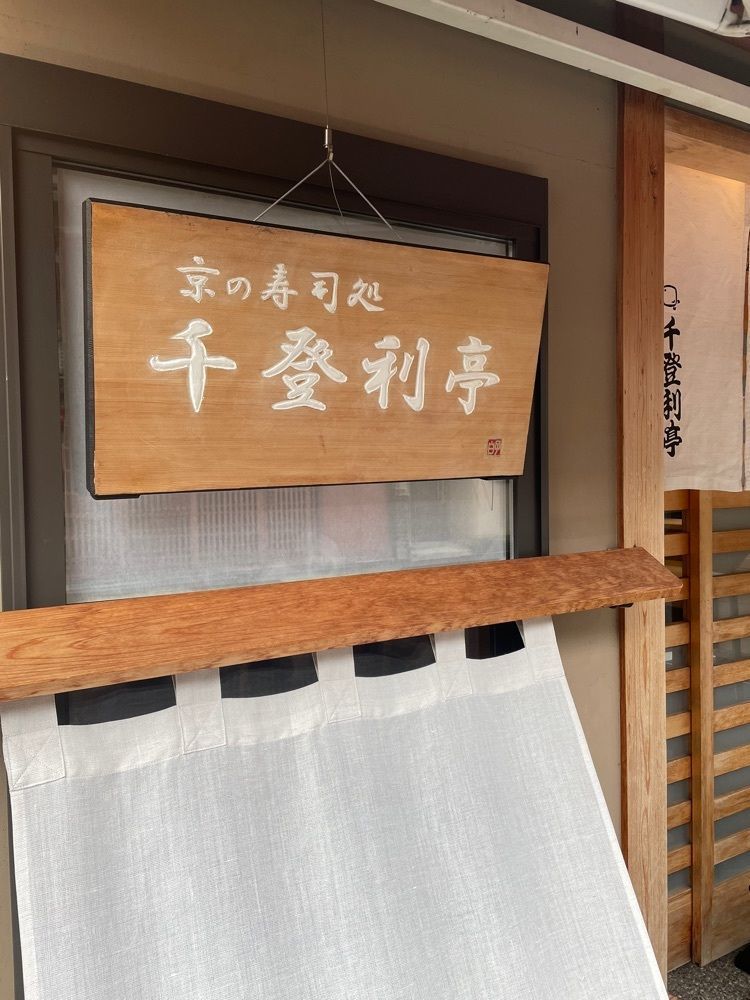 京の寿司処
千登利亭
千登利亭